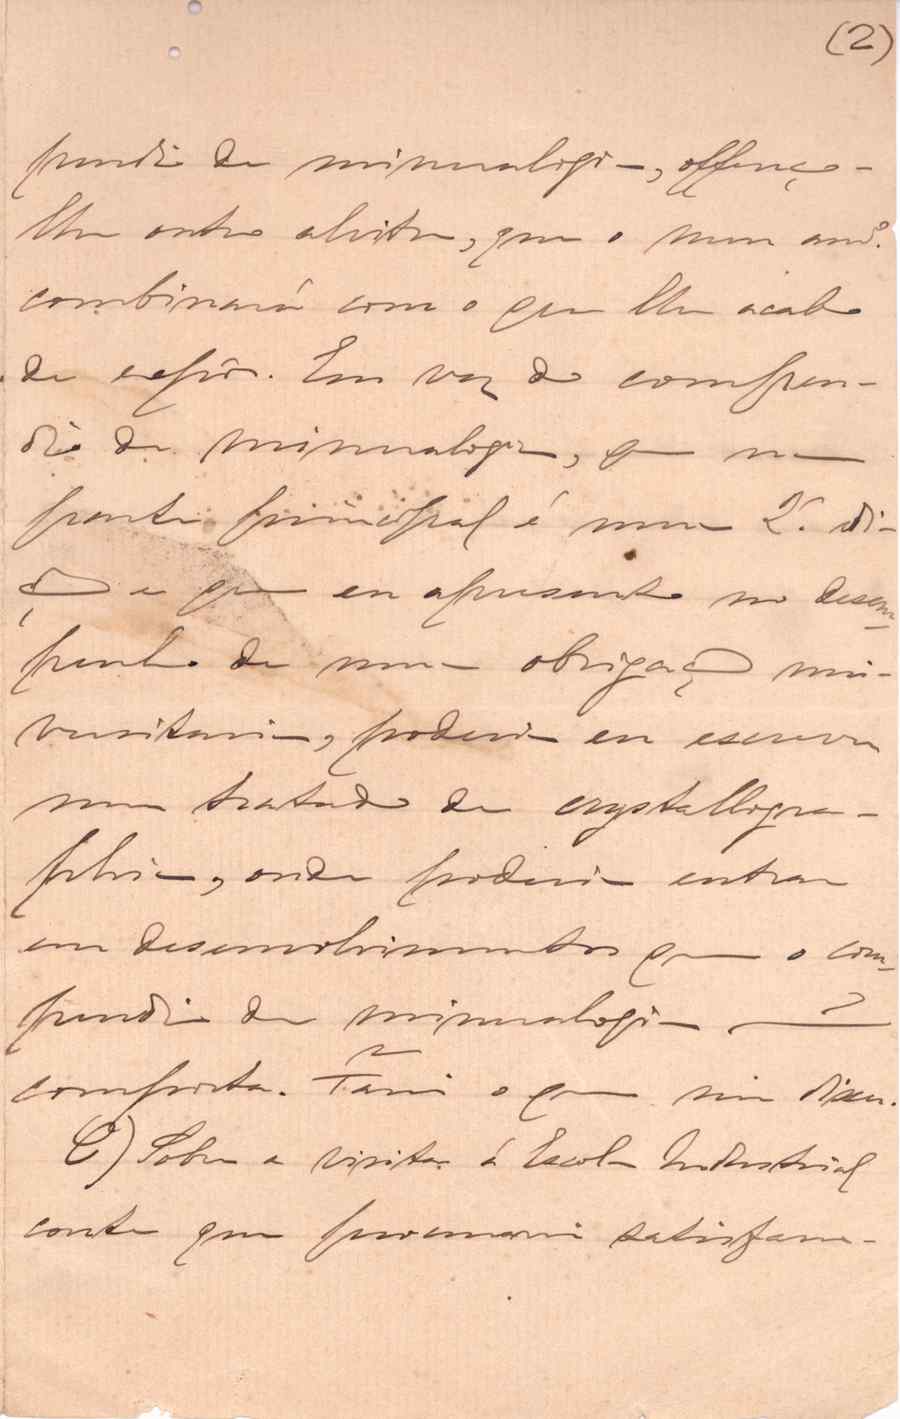 (2)
pendio de mineralogia, offereço-
lhe outro alvitre, que o meu am.º
combinará com o que lhe acabo
de expôr. Em vez do compen-
dio de mineralogia, que na
parte principal é uma 2.ª edi-
ção e que eu apresento no desem-
penho de uma obrigação uni-
versitaria, poderia eu escrever
um tratado de crystallogra-
phia, onde poderia entrar
em desenvolvimentos que o com-
pendio de mineralogia não
comporta. Farei o que me disser.
C) Sobre a visita á Escola Industrial
conte que procurarei satisfaze-